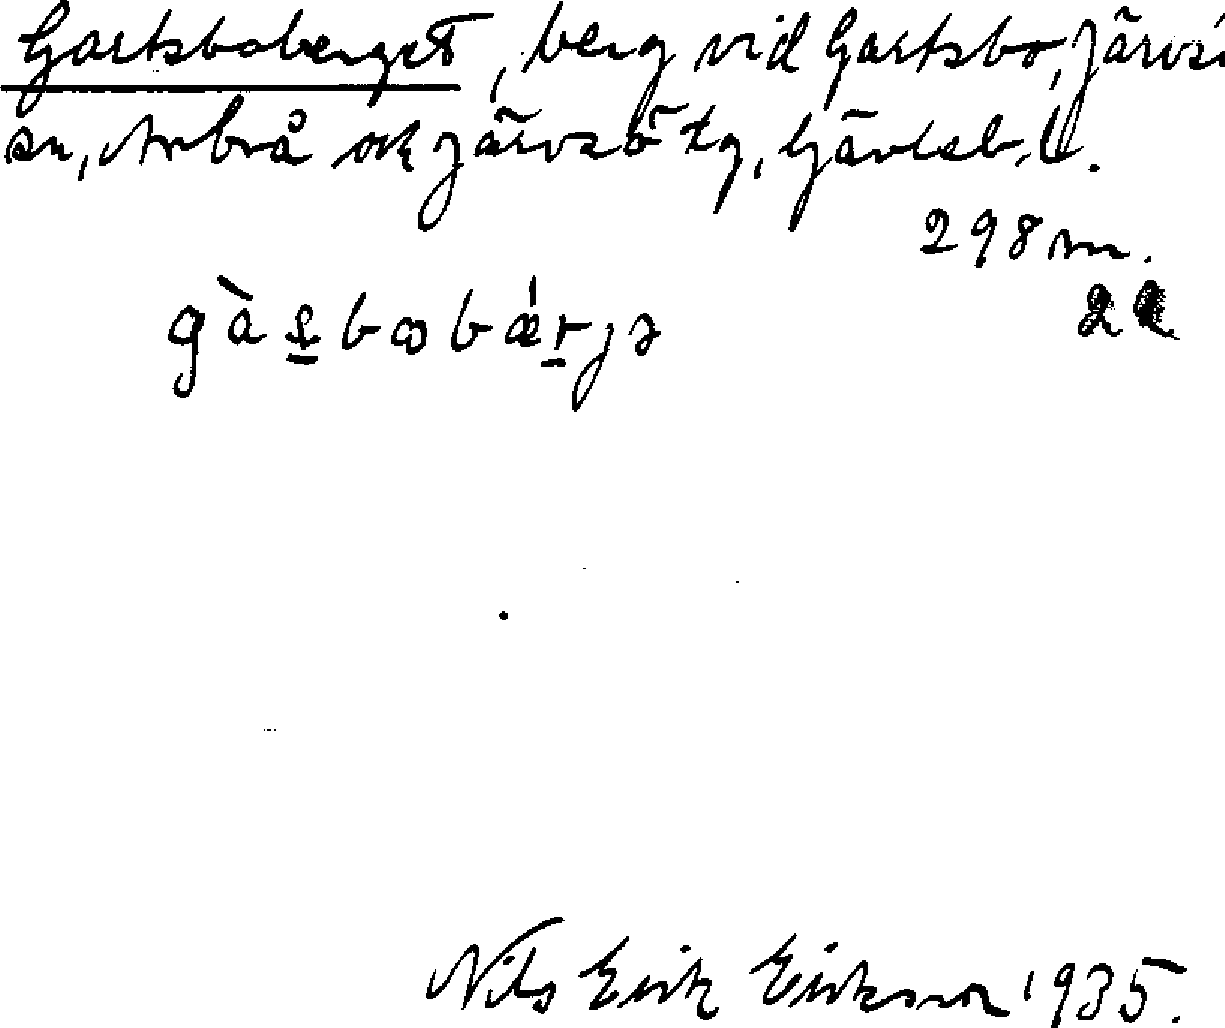 Gartsboberget, berg vid Gartsbo, Järvsö
sn, Arbrå ock Järvsö tg, Gävleb. l.
298 m.
gàsbobǽrjə
Nils Erik Eriksson 1935.